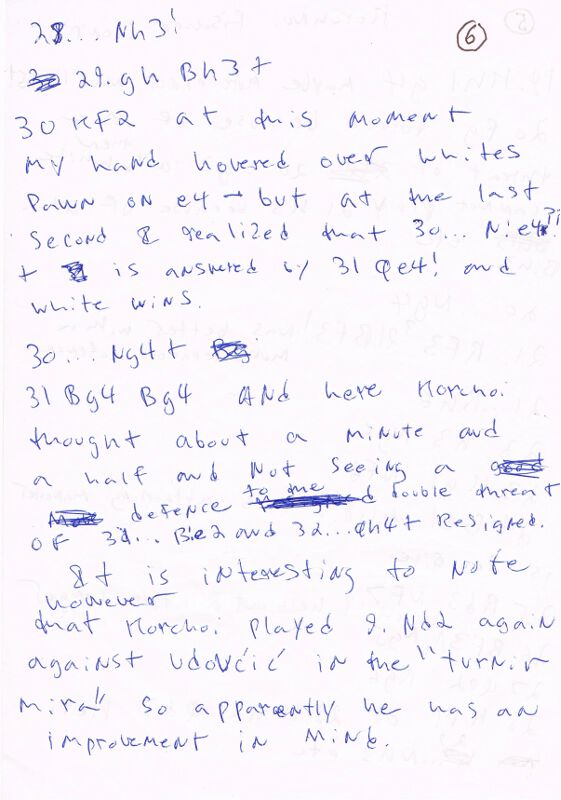 28... Nh3!
⑥
29. gh Bh3+
30 Kf2 at this moment
my hand hovered over whites
Pawn on e4 - but at the last
second I realized that 30... N:e4?!
+ is answered by 31 Qe4! and
white wins.
30... Ng4+
31 Bg4 Bg4 And here Korchoi
thought about a minute and
a half and Not seeing a
defence to the double threat
of 32... B:e2 and 32...Qh4+ Resigned.
It is interesting to Note
however
that Korchoi played 9. Nd2 again
against Udovčić in the "turnir
mira" so apparently he has an
improvement in Mind.